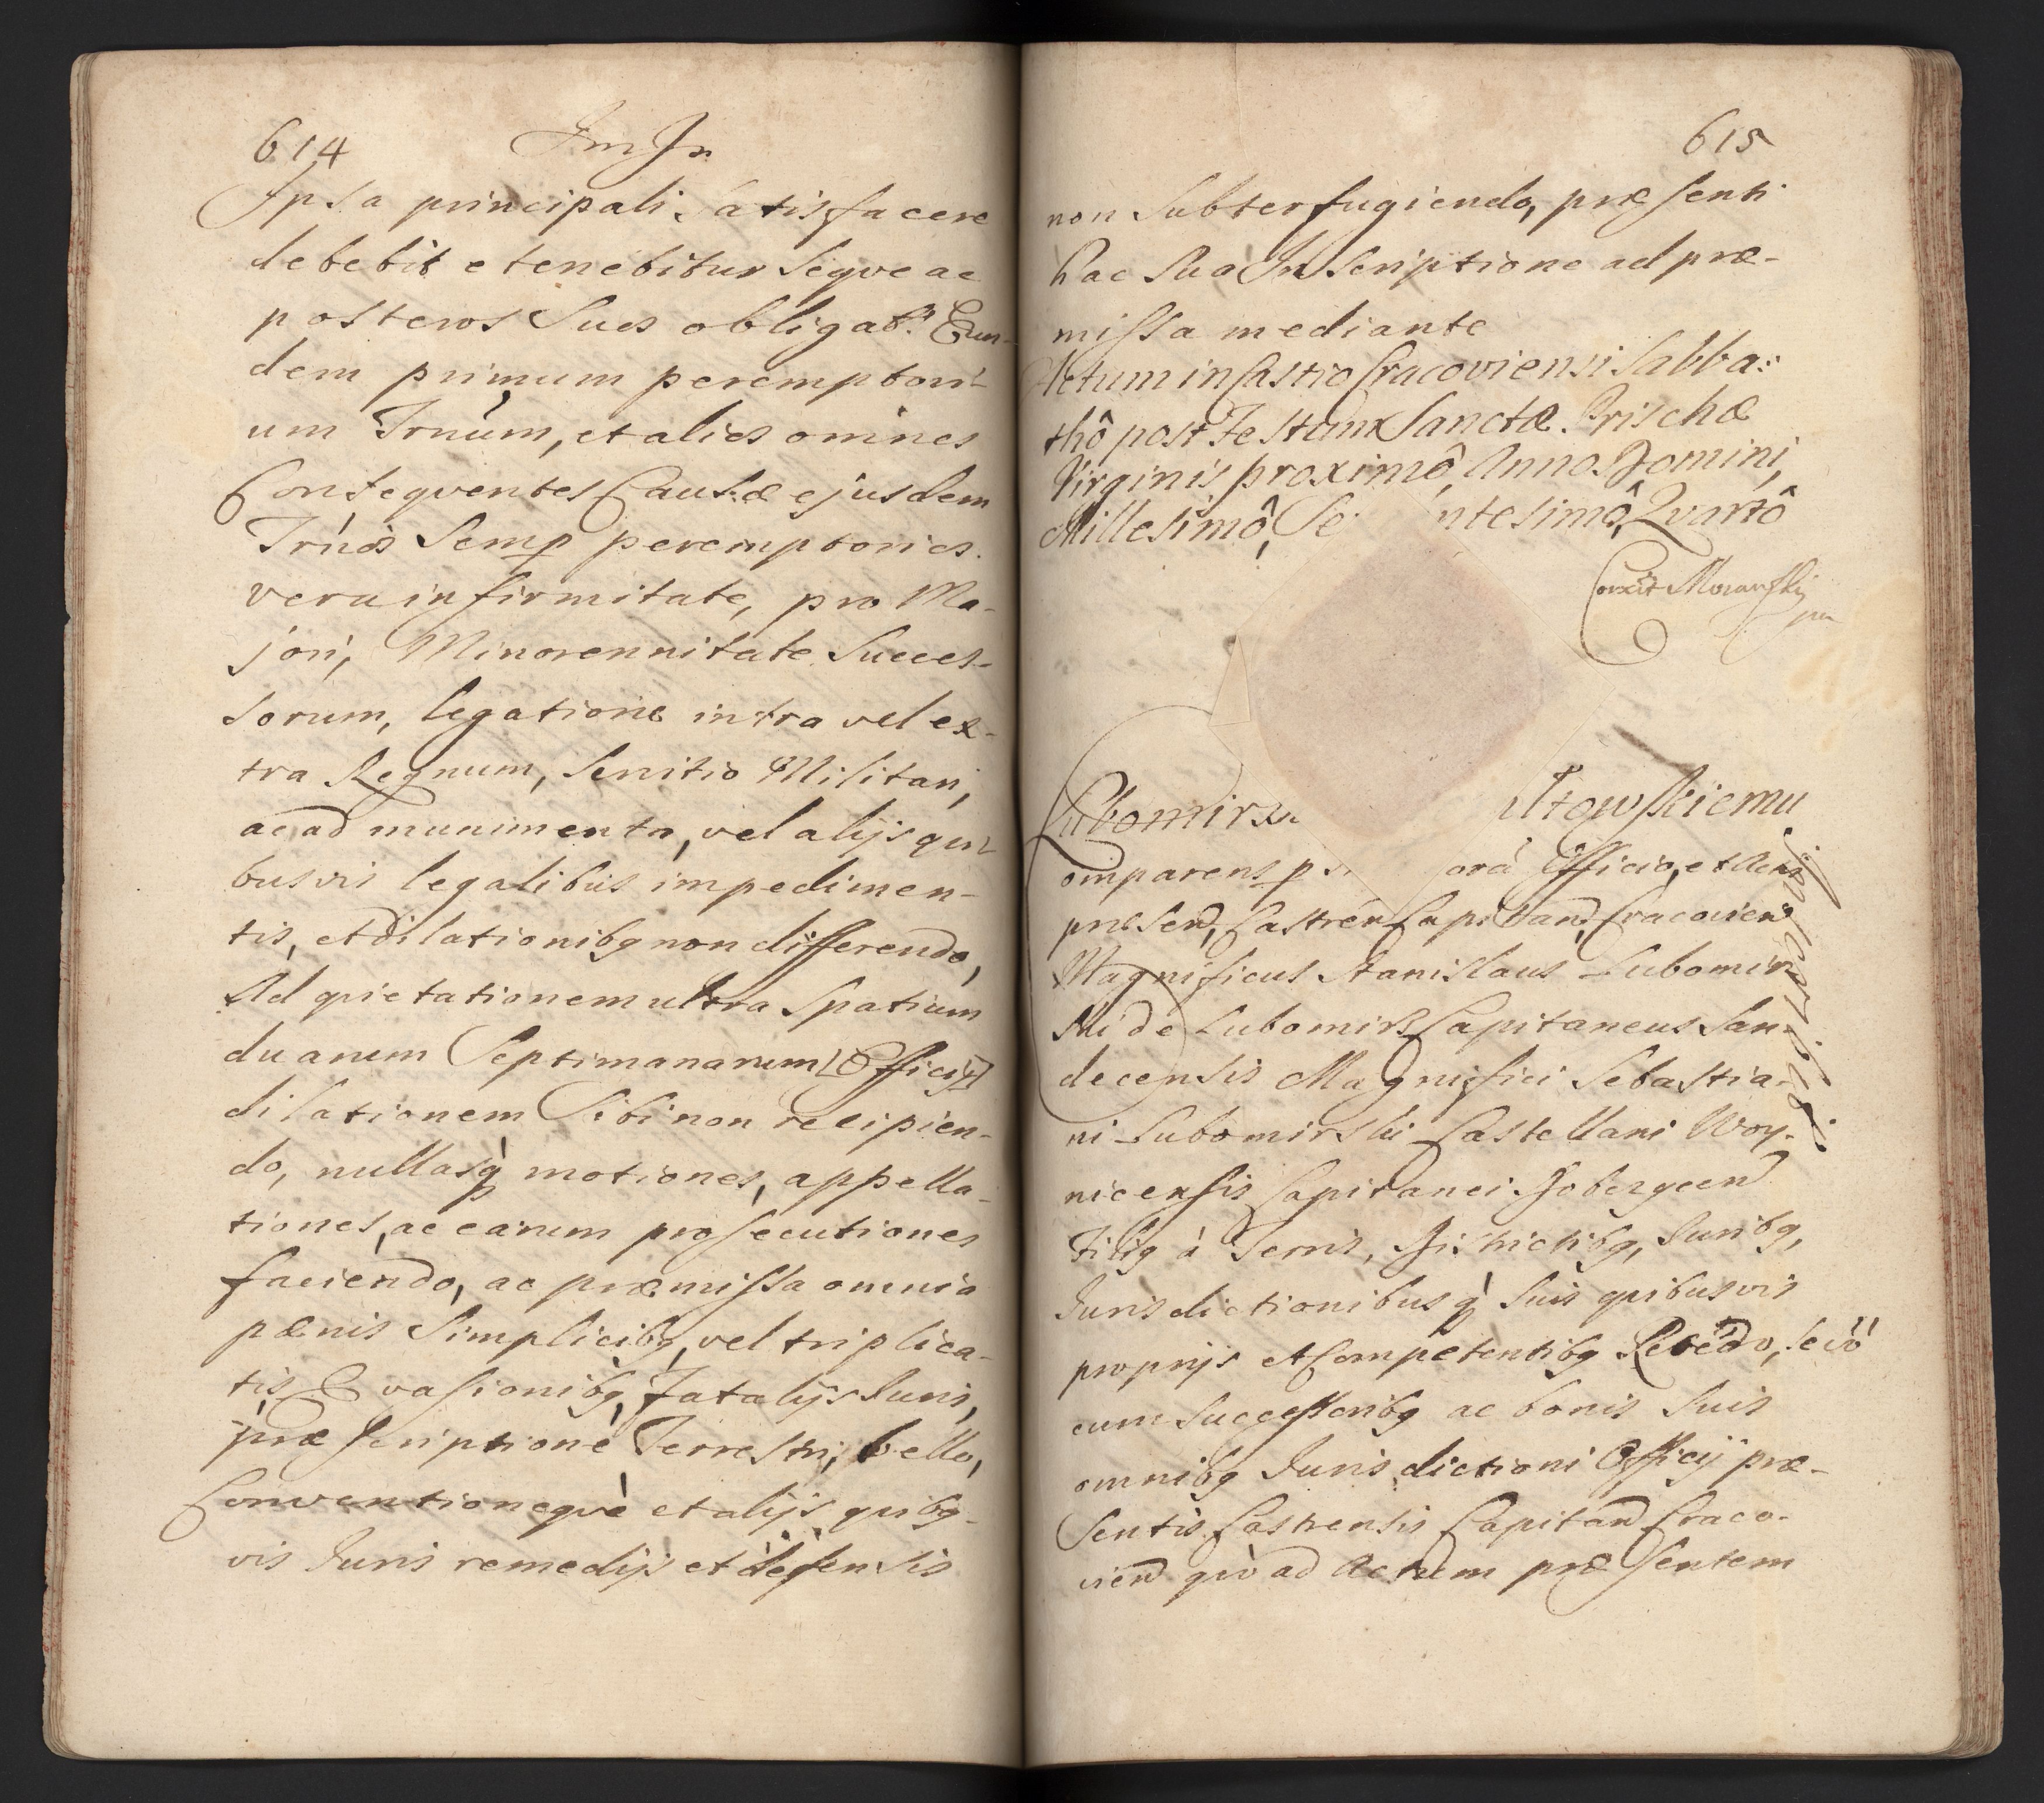 614
Im In
Ipsa principali satisfacere
debebit e tenebitur seqve ac
posteros suos obligat: Eun-
dem primum peremptori-
um Trnum, et alios omnes
Conseqventes Causæ ejusdem
Trnos Semp peremptorios.
vera infirmitate, pro Ma-
jori, Minorennitate Succes-
sorum, legatione intra vel ex-
tra Regnum, Servitio Militari,
ac ad munimenta, vel alijs qui-
busvis legalibus impedimen-
tis, et dilationibq non differendo,
Ad qvietationem ultra Spatium
duarum Septimanarum [Officij]
dilationem Sibi non recipien-
do, nullasq motiones, appella-
tiones, ac earum prosecutiones
faciendo, ac præmissa omnia
pænis Simplicibq, vel triplica-
tis, Evasionibq, fatalijs Juris,
præscriptione Terrestri, bello,
Conventioneqve et alijs quibq-
vis Juris remedijs et defensis
615
non Subterfugiendo, præsenti
hac Sua Inscriptione ad præ-
missa mediante
Actum in Castro Cracoviensi Sabba:
thô post Festum Sanctæ Priscæ
Virginis proximô, Anno Domini,
Millesimô, Se ntesimô, Qvartô
Correxit Morawski
Lubomirs ltowskiemu
omparens p orā Officio, et Actis
præsend, Castren Capitand, Cracovien
Magnificus Stanislaus Lubomir
ski de Lubomirz Capitaneus San-
decensis Magnifici Sebastia-
ni Lubomirski Castellani Woy-
nicensis Capitanei Dobczycen
Filiq à Terris, Districtibq, Juribq,
Jurisdictionibusq Suis qvibusvis
proprijs et Competentibq Recedo, seq
cum Successoribq ac bonis Suis
omnibq Jurisdictioni Officij præ-
sentis Castrensis Capitand Craco-
vien qvò ad Actum præsentem